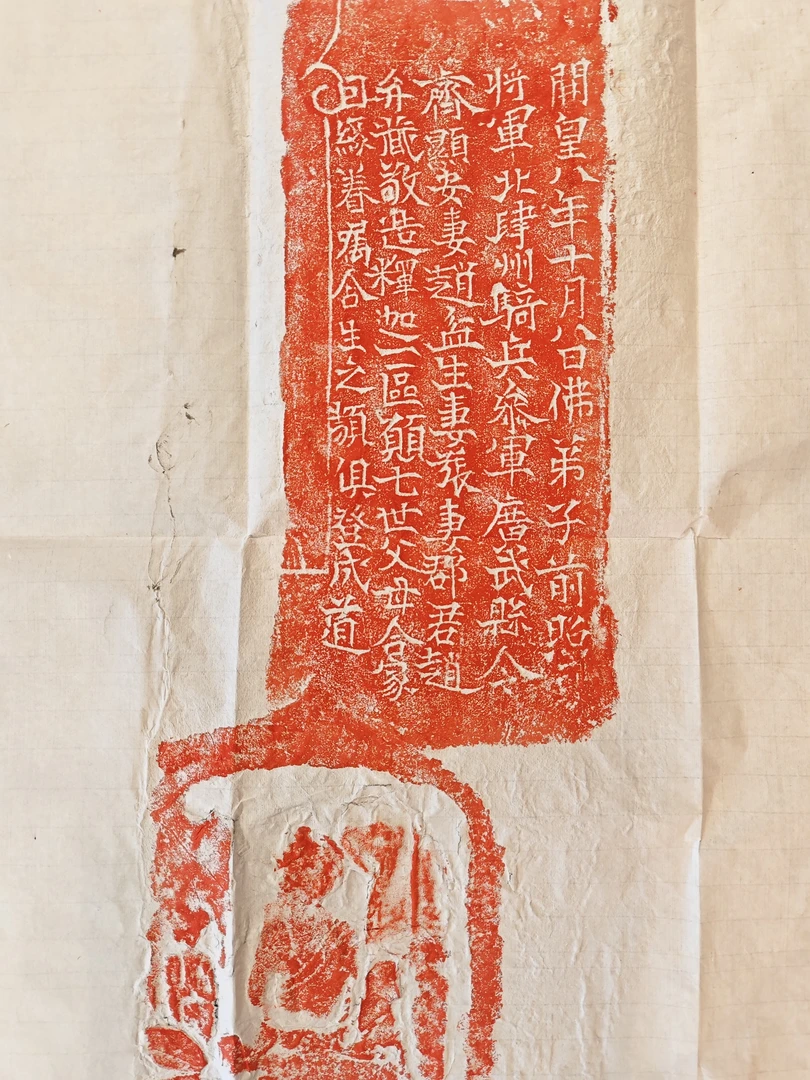 開皇八年十月八日佛弟子前昭
將軍北肆州騎兵叅軍廣武縣令
齊顯安妻趙益生妻張妻郡君趙
弁藏敬造釋迦一區願七世父母合家
因緣眷属含生之類俱登成道